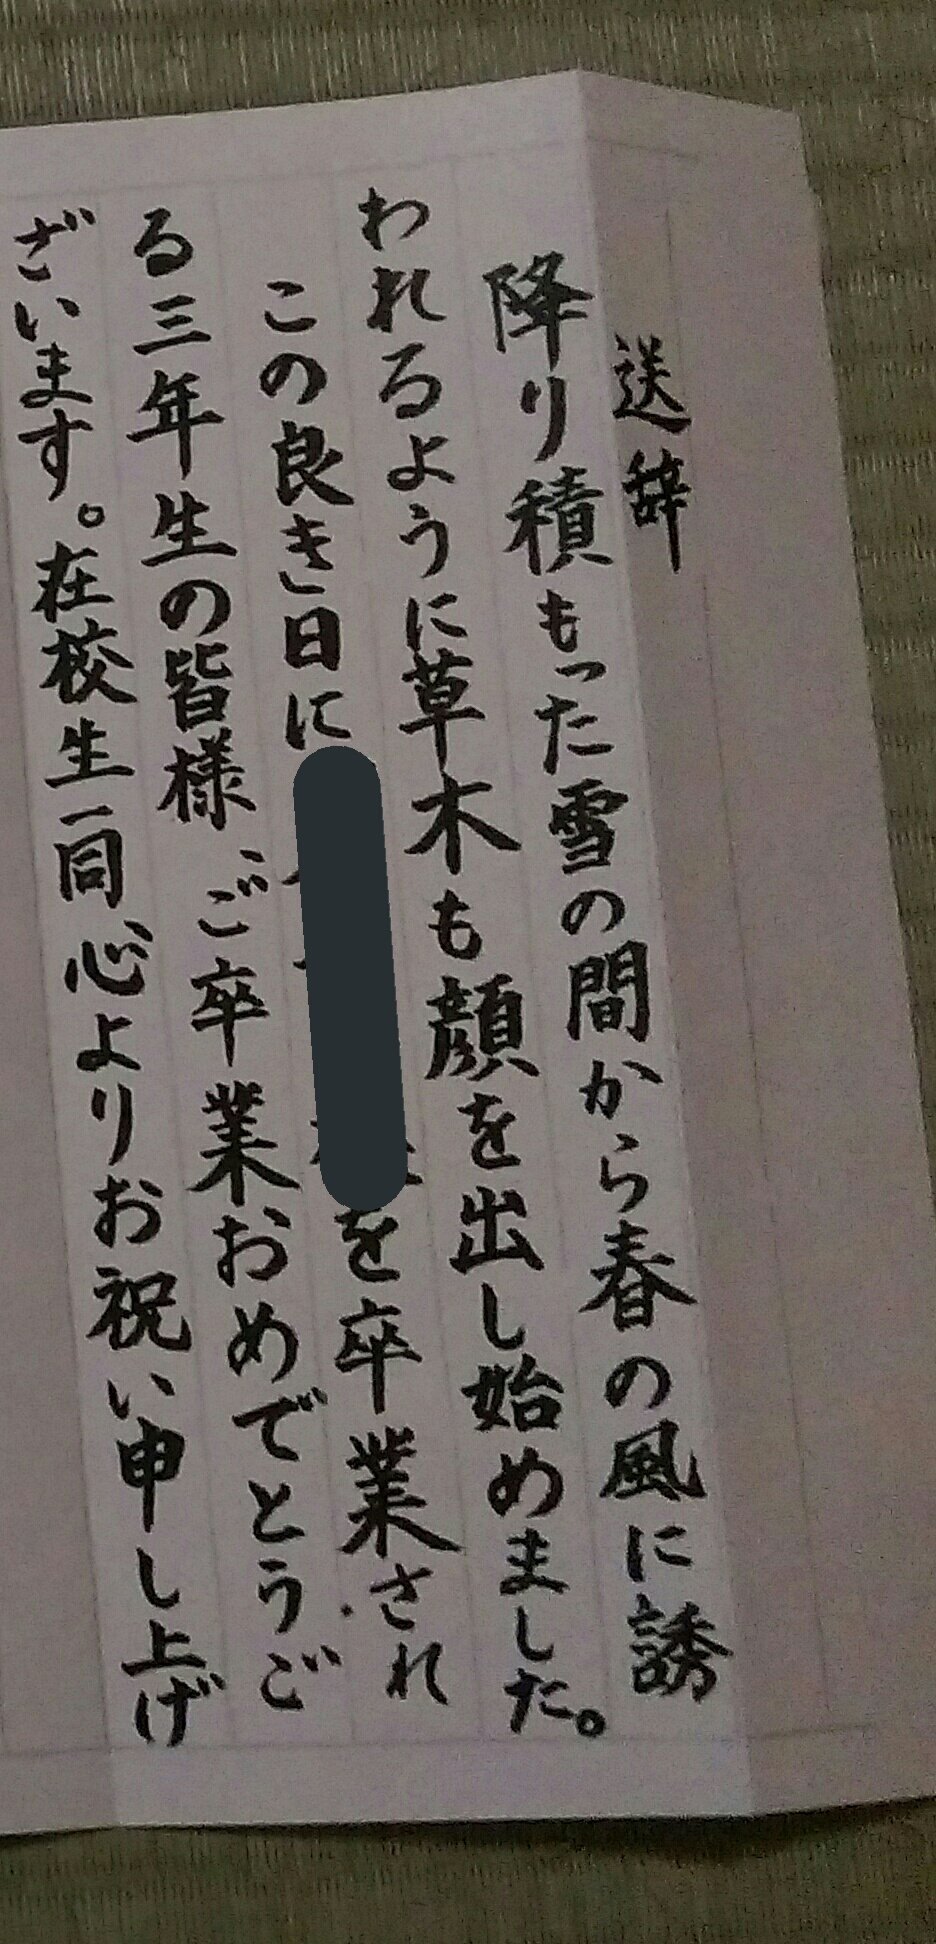 送辞
降り積もった雪の間から春の風に誘
われるように草木も顔を出し始めました。
この良き日に を卒業され
る三年生の皆様、ご卒業おめでとうご
ざいます。在校生一同心よりお祝い申し上げ